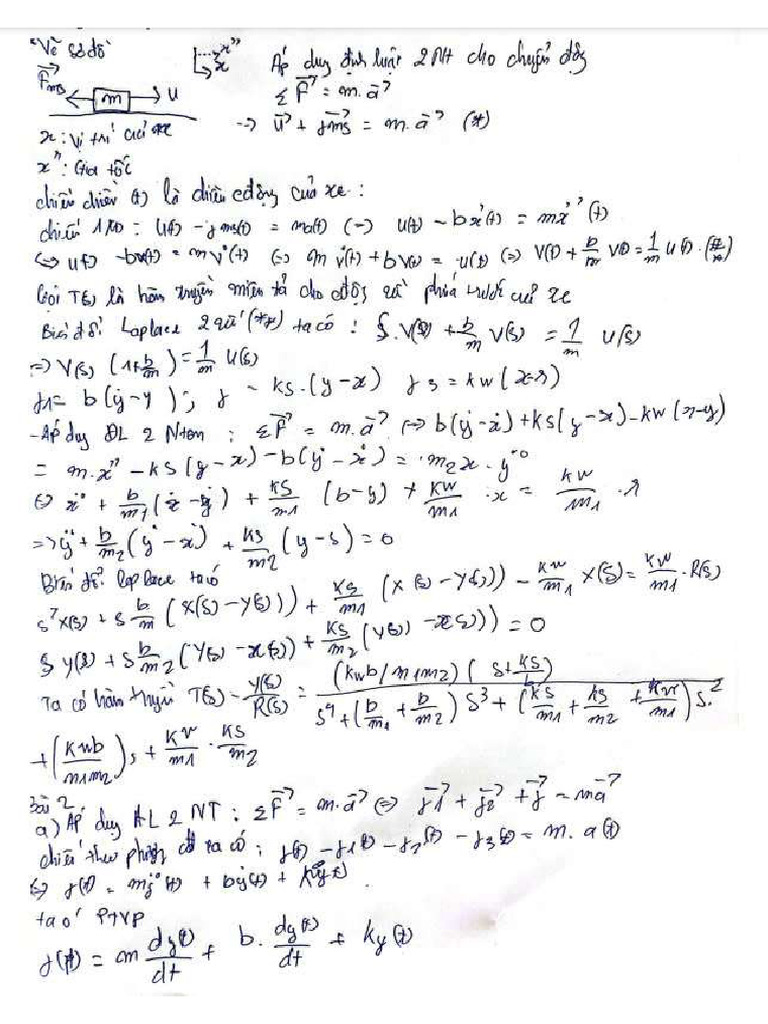 "Vẽ sơ đồ x" x Áp dụng định luật 2 Nt cho chuyển động
Fms m u Σ F = m.a
→ u + fms = m.a (*)
x: vị trí của xe
x": Gia tốc
chiều (+) là chiều cđộng của xe:
u(t) - fms(t) = ma(t) (→) u(t) - bx'(t) = mx''(t)
⇔ u(t) - bv(t) = m v'(t) ⇔ m v'(t) + b v(t) = u(t) ⇔ v'(t) + b/m v(t) = 1/m u(t)
Gọi T(s) là hàm truyền miền tả cho động xe
Biến đổi Laplace 2 (**) ta có: S.V(s) + b/m V(s) = 1/m U(s)
⇒ V(s) (1+b/m) = 1/m U(s)
f1= b(ẏ-y); f - ks.(y-x) f3 = kw(x-r)
-Áp dụng ĐL 2 Ntơn: ΣF = m.a ⇔ b(ẏ-ẋ)+ks(y-x)-kw(x-y)
= m.x" - ks(y-x) - b(ẏ-ẋ) = m2x.y
⇔ ẍ + b/m1(ẋ-ẏ) + ks/m1 (b-y) + kw/m1 .x = kw/m1 .r
=> ÿ + b/m2(ẏ-ẋ) + ks/m2 (y-s) = 0
Biến đổi laplace ta có
s²X(s) + s b/m (X(s)-Y(s)) + ks/m1 (X(s)-Y(s)) - kw/m1 X(s) = kw/m1 .R(s)
s y(s) + s b/m2 (Y(s)-x(s)) + ks/m2 (y(s)-x(s)) = 0
Ta có hàm truyền T(s) - Y(s)/R(s) = (kwb/m1m2)(s+ks/b) / s⁴+(b/m1+b/m2)s³+(ks/m1+ks/m2+kw/m1)s.²
+(kwb/m1m2)s + kw/m1 . ks/m2
Bài 2
a) Áp dụng ĐL 2 NT: ΣF = m.a ⇔ f1 + f2 + f = ma
chiếu theo ta có: f(t) - f1(t) - f2(t) - f3(t) = m.a(t)
⇔ f(t) = mÿ(t) + bẏ(t) + ky(t).
ta có PTVP
f(t) = m dy(t)/dt + b. dy(t)/dt + ky(t)